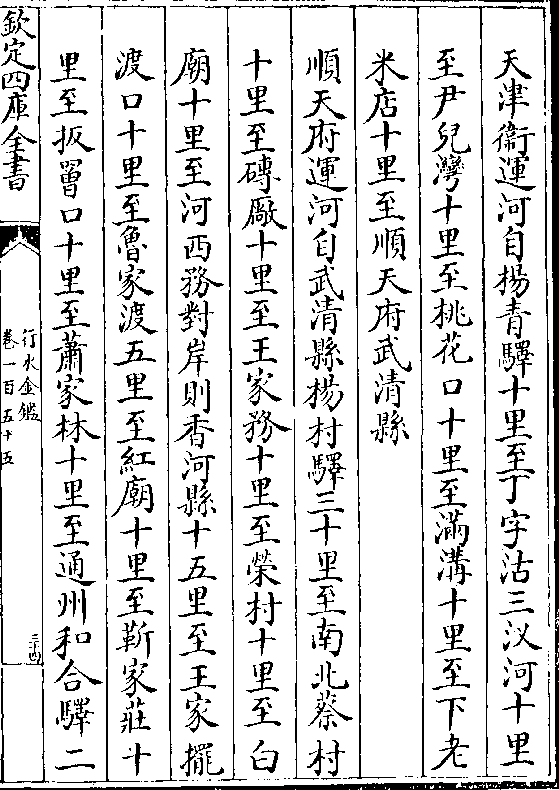 天津衛運河自楊青驛十里至丁字沽三汊河十里
至尹兒灣十里至桃花口十里至滿溝十里至下老
米店十里至順天府武清縣
順天府運河自武清縣楊村驛三十里至南北蔡村
十里至磚廠十里至王家務十里至榮村十里至白
廟十里至河西務對岸則香河縣十五里至王家擺
渡口十里至魯家渡五里至紅廟十里至靳家莊十
里至扳罾口十里至蕭家林十里至通州和合驛二
欽定四庫全書
行水金鑑
卷一百五十五
三十四